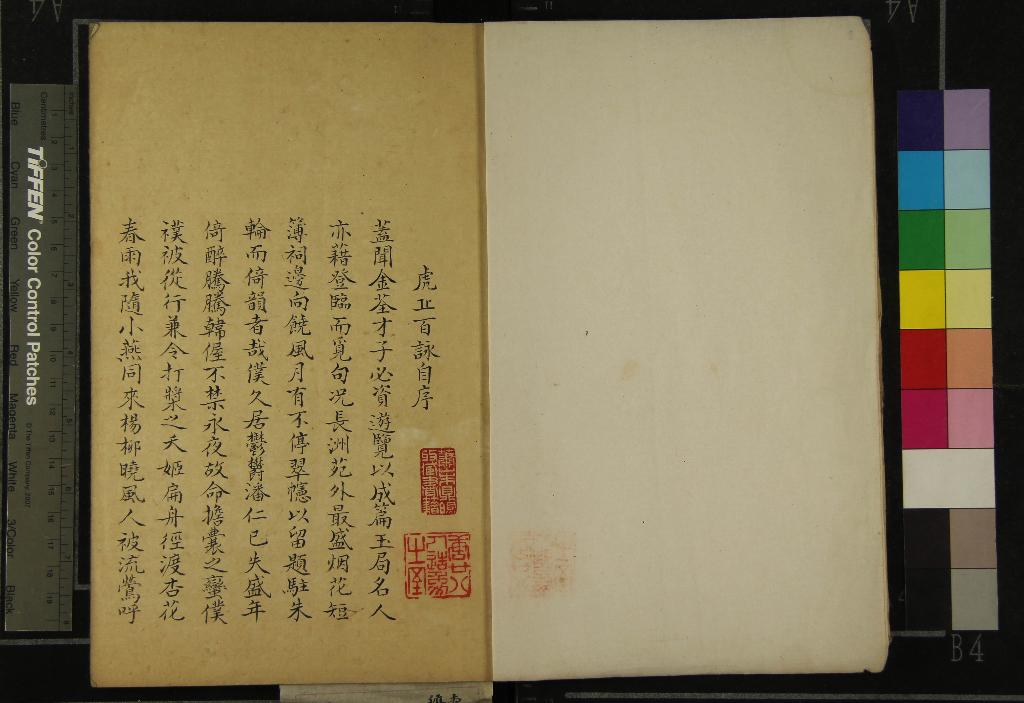 虎丘百詠自序
蓋聞金荃才子必資遊覽以成篇玉局名人
亦藉登臨而覓句况長洲苑外最盛烟花短
簿祠邊向饒風月有不停翠幰以留題駐朱
輪而倚韻者哉僕久居鬱鬱潘仁已失盛年
倚醉騰騰韓偓不禁永夜故命擔囊之蠻僕
襆被從行兼令打槳之夭姬扁舟徑渡杏花
春雨我隨小燕同來楊柳曉風人被流鶯呼
TIFFEN Color Control Patches
© The Tiffen Company, 2007
Centimetres
Inches
Blue
Cyan
Green
Yellow
Red
Magenta
White
3/Color
Black
A4
A4
B4